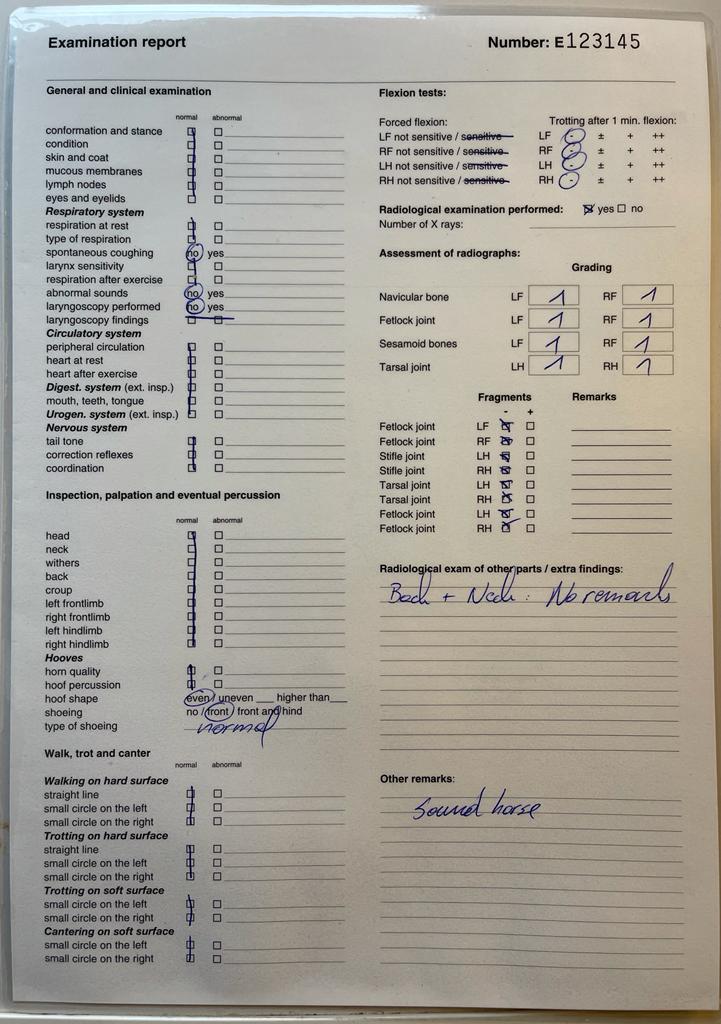 Examination report
Number: E123145
General and clinical examination
normal abnormal
conformation and stance
condition
skin and coat
mucous membranes
lymph nodes
eyes and eyelids
Respiratory system
respiration at rest
type of respiration
spontaneous coughing no yes
larynx sensitivity
respiration after exercise
abnormal sounds no yes
laryngoscopy performed no yes
laryngoscopy findings
Circulatory system
peripheral circulation
heart at rest
heart after exercise
Digest. system (ext. insp.)
mouth, teeth, tongue
Urogen. system (ext. insp.)
Nervous system
tail tone
correction reflexes
coordination
Inspection, palpation and eventual percussion
normal abnormal
head
neck
withers
back
croup
left frontlimb
right frontlimb
left hindlimb
right hindlimb
Hooves
horn quality
hoof percussion
hoof shape even / uneven ___ higher than ___
shoeing no / front / front and hind
type of shoeing normal
Walk, trot and canter
normal abnormal
Walking on hard surface
straight line
small circle on the left
small circle on the right
Trotting on hard surface
straight line
small circle on the left
small circle on the right
Trotting on soft surface
small circle on the left
small circle on the right
Cantering on soft surface
small circle on the left
small circle on the right
Flexion tests:
Forced flexion: Trotting after 1 min. flexion:
LF not sensitive / sensitive LF - ± + ++
RF not sensitive / sensitive RF - ± + ++
LH not sensitive / sensitive LH - ± + ++
RH not sensitive / sensitive RH - ± + ++
Radiological examination performed: yes no
Number of X rays:
Assessment of radiographs:
Grading
Navicular bone LF 1 RF 1
Fetlock joint LF 1 RF 1
Sesamoid bones LF 1 RF 1
Tarsal joint LH 1 RH 1
Fragments Remarks
- +
Fetlock joint LF
Fetlock joint RF
Stifle joint LH
Stifle joint RH
Tarsal joint LH
Tarsal joint RH
Fetlock joint LH
Fetlock joint RH
Radiological exam of other parts / extra findings:
Back + Neck : No remarks
Other remarks:
Sound horse